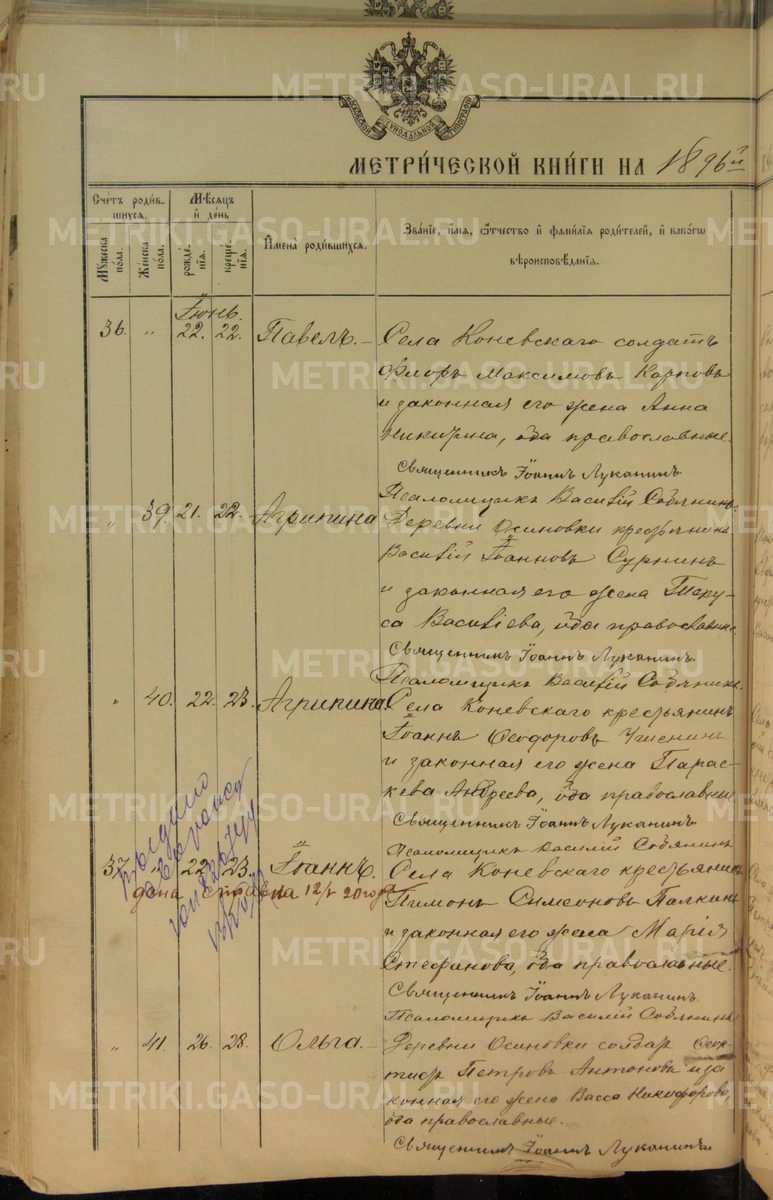 МОСКОВСКОЙ СѴНОДАЛЬНОЙ ТИПОГРАФІИ
МЕТРИ́ЧЕСКОЙ КНИ́ГИ НА 1896й
Сче́тъ роди́в-
шихся.
Му́жеска пола.
Же́нска пола.
Мѣ́сяцъ
и́ де́нь
рожде́-
нія.
креще́-
нія.
И҆мена̀ роди́вшихся.
Зва́ніе, и҆́мя, ѻ҆́тчество и҆ фами́лія роди́телей, и҆ како́гѡ
вѣроисповѣ́данія.
Іюнь.
36. „ 22. 22. Павелъ. – Села Коневскаго солдатъ
Флоръ Максимовъ Карповъ
и законная его жена Анна
Никитина, оба православные.
Священникъ Іоаннъ Луканинъ
Псаломщикъ Василій Собянинъ.
„ 39. 21. 22. Агрипина Деревни Осиновки крестьянинъ
Василій Іоанновъ Сурнинъ
и законная его жена Теку-
са Василіева, оба православные.
Священникъ Іоаннъ Луканинъ.
Псаломщикъ Василій Собянинъ.
„ 40. 22. 23. Агрипина Села Коневскаго крестьянинъ
Іоаннъ Ѳеодоровъ
и законная его жена Парас-
кева Андреева, оба православные
Священникъ Іоаннъ Луканинъ
Псаломщикъ Василій Собянинъ
37. „ 22. 23. Іоаннъ. Села Коневскаго крестьянинъ
дана справка 12/V 20 года
Пимонъ Симеоновъ Палкинъ
и законная его жена Марія
Стефанова, оба православные.
Священникъ Іоаннъ Луканинъ.
Псаломщикъ Василій Собянинъ
„ 41. 26. 28. Ольга. – Деревни Осиновки солдатъ Ѳеок-
тистъ Петровъ Антоновъ и за
конная его жена Васса Никифорова,
оба православные.
Священникъ Іоаннъ Луканинъ
METRIKI.GASO-URAL.RU